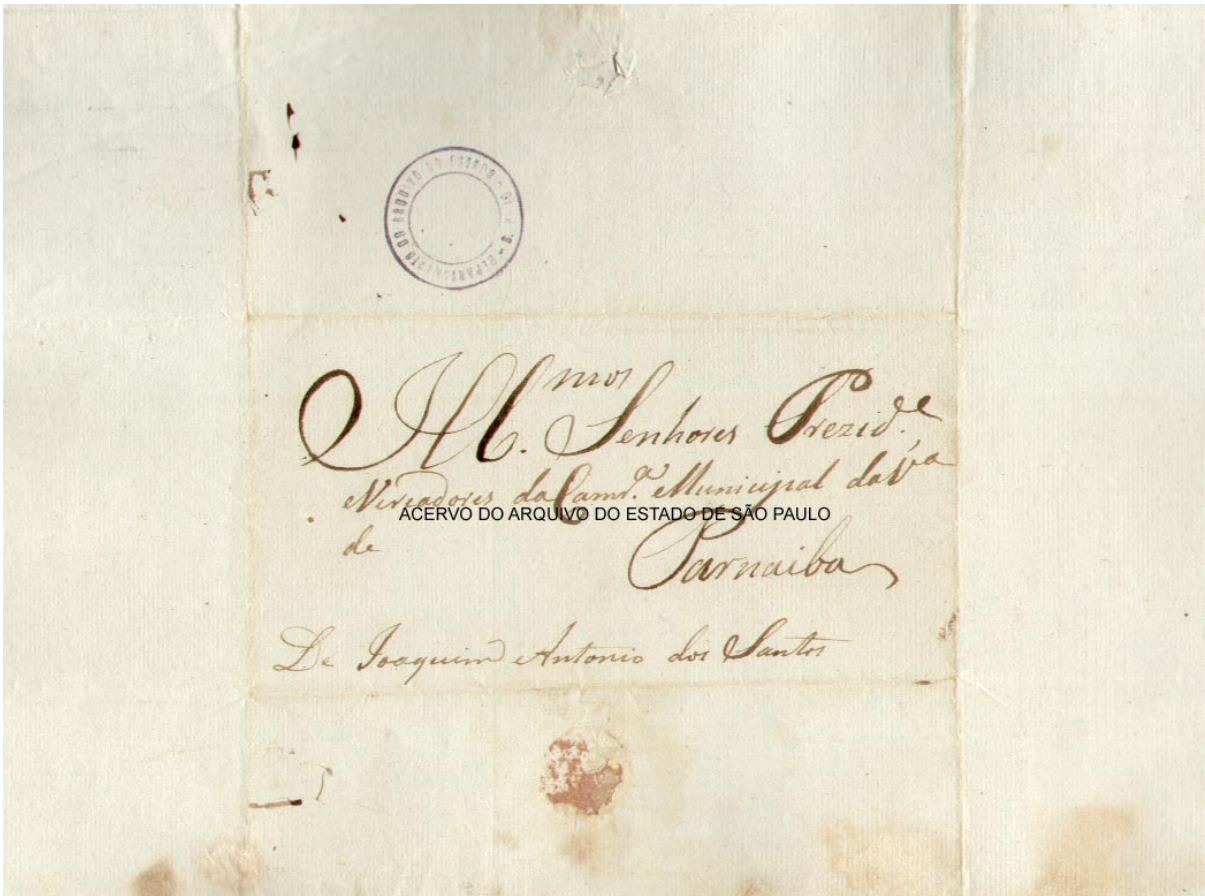 DEPARTAMENTO DO ARQUIVO DO ESTADO
Ill.mos Senhores Prezid.e
e Vereadores da Cam.ra Municipal da V.a
ACERVO DO ARQUIVO DO ESTADO DE SÃO PAULO
de Parnaiba
De Joaquim Antonio dos Santos